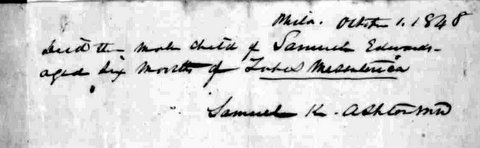 Phila. Octobr 1. 1848
Died the male child of Samuel Edwards
aged Six Months of Tabes Mesenterica
Samuel K. Ashton MD